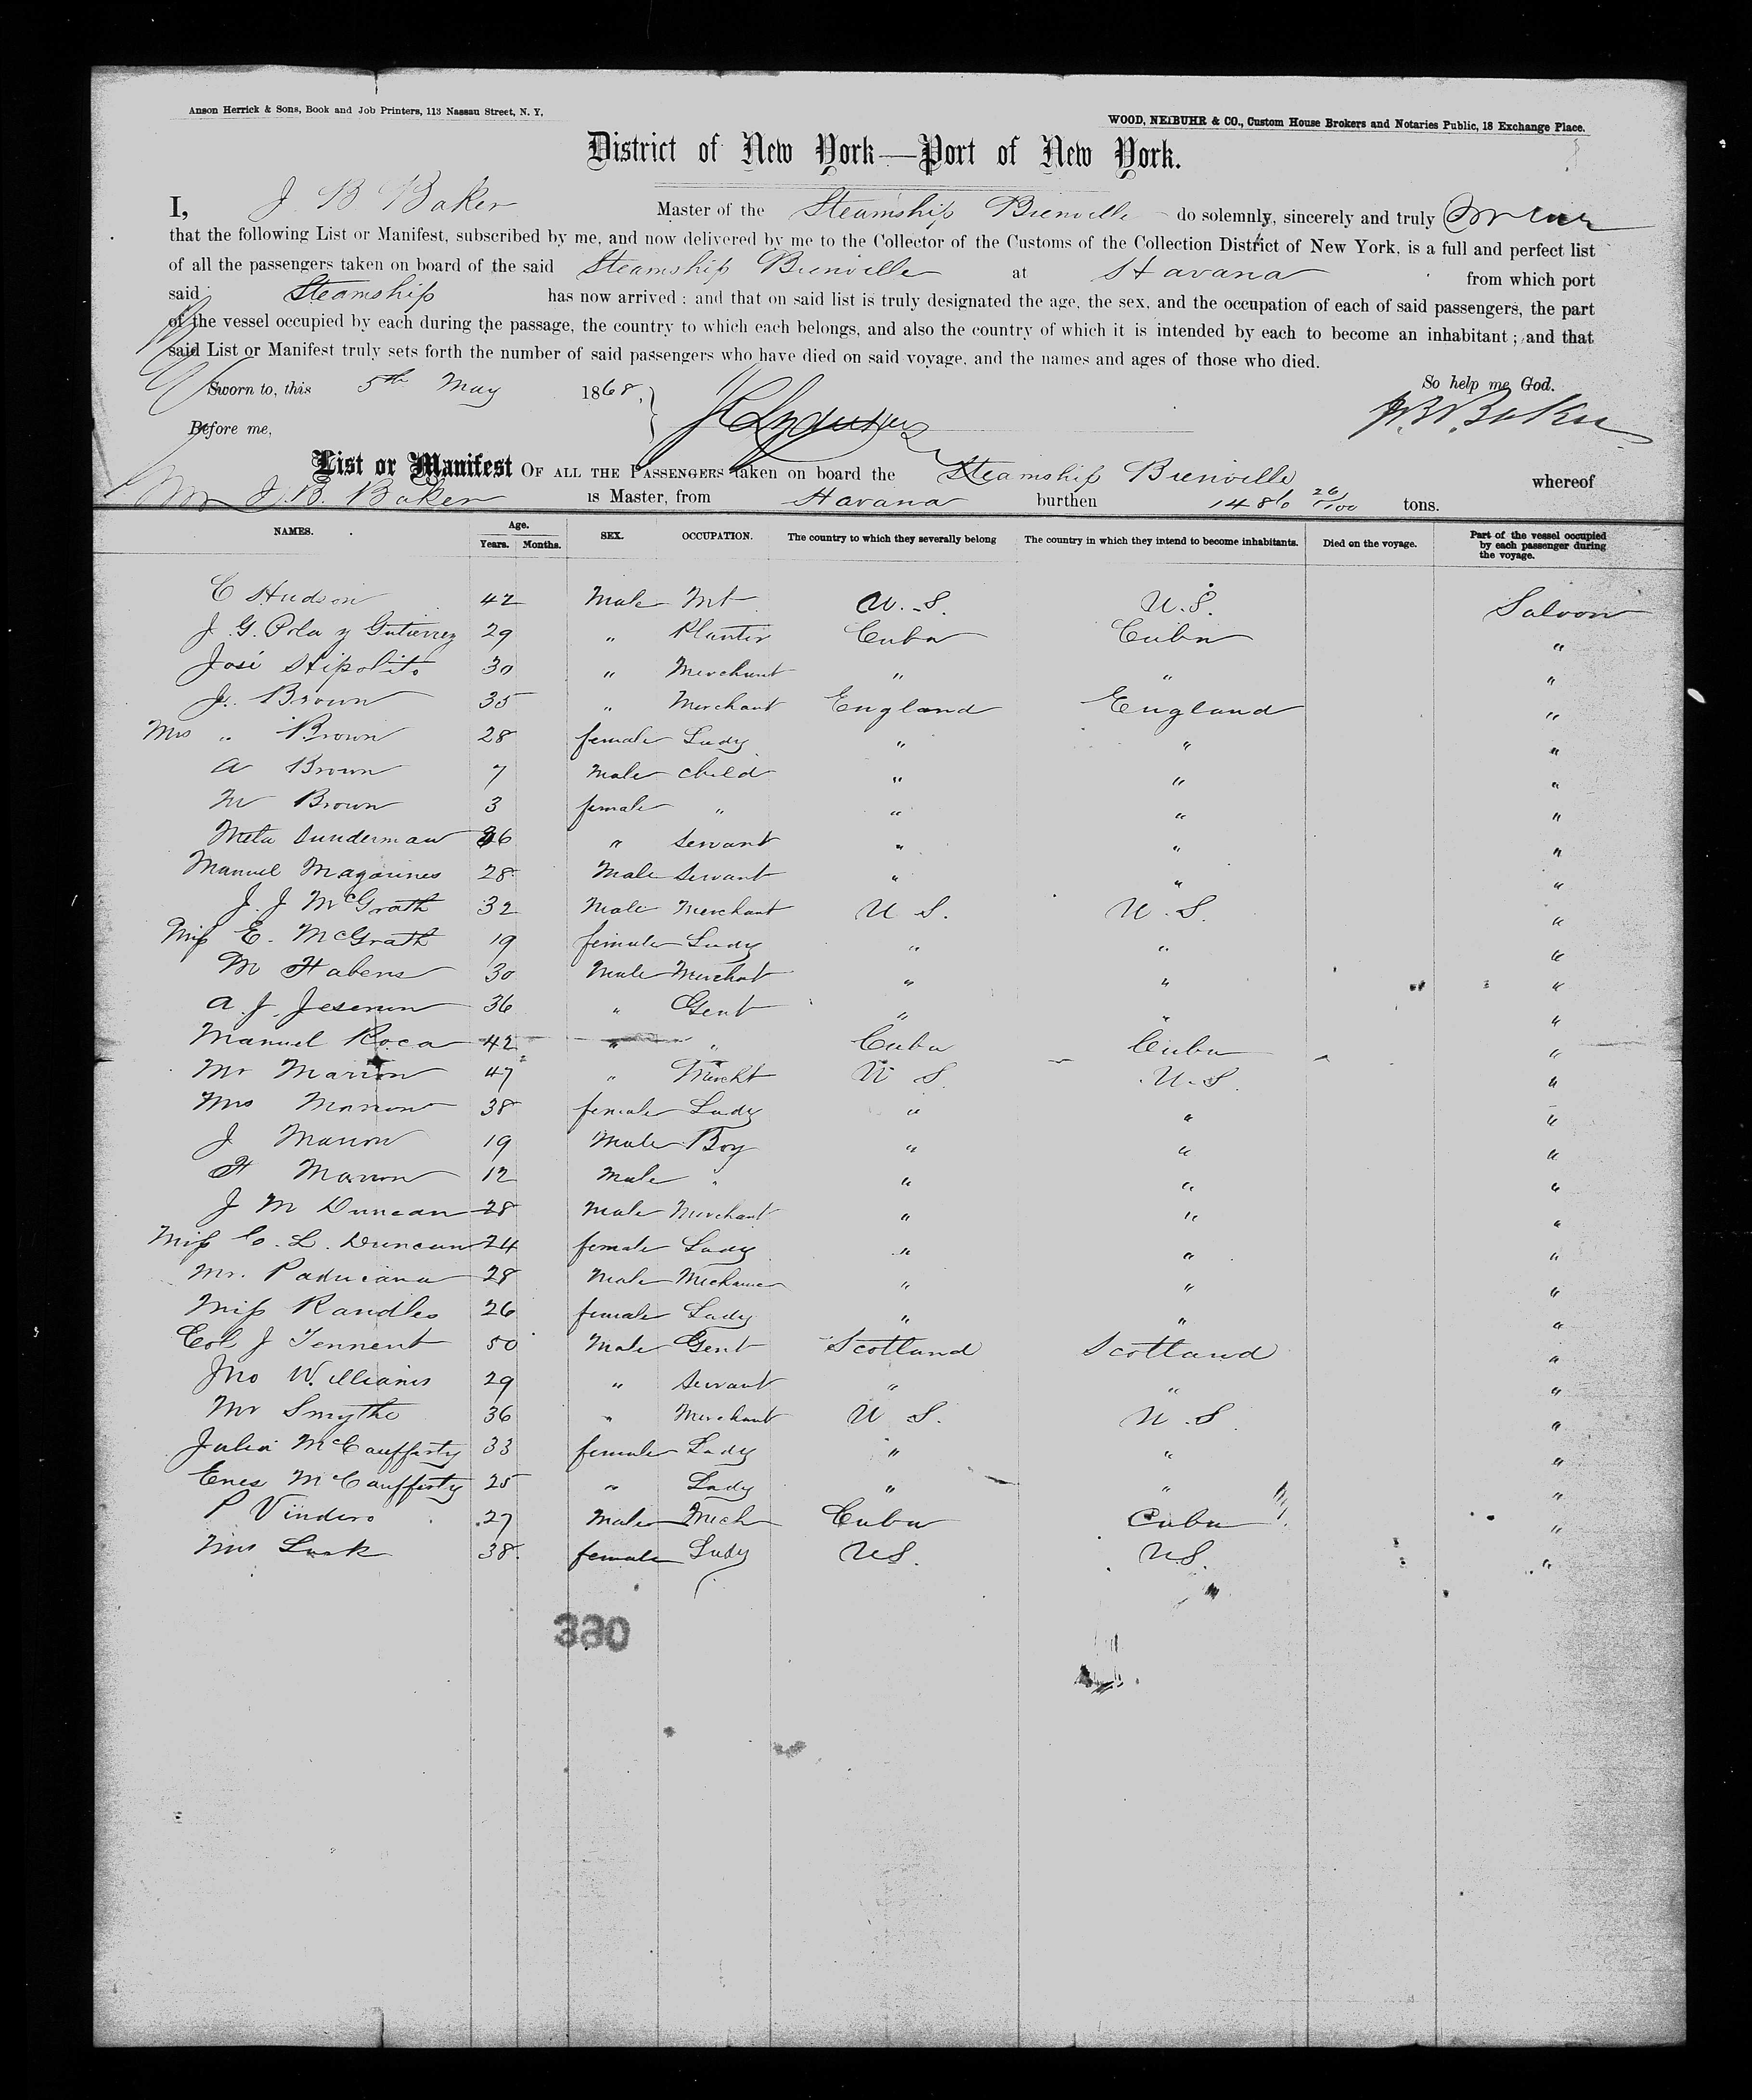 Anson Herrick & Sons, Book and Job Printers, 113 Nassau Street, N. Y.
WOOD, NEIBUHR & CO., Custom House Brokers and Notaries Public, 18 Exchange Place.
District of New York—Port of New York.
I, J B Baker Master of the Steamship Bienville do solemnly, sincerely and truly
that the following List or Manifest, subscribed by me, and now delivered by me to the Collector of the Customs of the Collection District of New York, is a full and perfect list
of all the passengers taken on board of the said Steamship Bienville at Havana from which port
said Steamship has now arrived: and that on said list is truly designated the age, the sex, and the occupation of each of said passengers, the part
of the vessel occupied by each during the passage, the country to which each belongs, and also the country of which it is intended by each to become an inhabitant; and that
said List or Manifest truly sets forth the number of said passengers who have died on said voyage, and the names and ages of those who died.
Sworn to, this 5th May 1868. So help me God.
Before me, J.B. Baker
List or Manifest OF ALL THE PASSENGERS taken on board the Steamship Bienville whereof
J. B. Baker is Master, from Havana burthen 1486 26/100 tons.
NAMES. Age. Years. Months. SEX. OCCUPATION. The country to which they severally belong The country in which they intend to become inhabitants. Died on the voyage. Part of the vessel occupied by each passenger during the voyage.
C Hudson 42 Male Mt U.S. U.S. Saloon
J. G. Pola y Gutierrez 29 " Planter Cuba Cuba "
José Hipolito 30 " Merchant " " "
J. Brown 35 " Merchant England England "
Mrs " Brown 28 female Lady " " "
A Brown 7 Male child " " "
M Brown 3 female " " " "
Meta Sunderman 36 " Servant " " "
Manuel 28 Male Servant " " "
J. J McGrath 32 Male Merchant U S. U.S. "
Miss E. McGrath 19 female Lady " " "
M Habens 30 Male Merchat " " "
A. J. 36 " Gent " " "
Manuel Roca 42 " " Cuba Cuba "
Mr Marion 47 " Mercht U S. U.S. "
Mrs Marion 38 female Lady " " "
J Marion 19 Male Boy " " "
H Marion 12 Male " " " "
J M Duncan 28 Male Merchant " " "
Miss C. L. Duncan 24 female Lady " " "
Mr. Paduciana 28 Male " " "
Miss Randles 26 female Lady " " "
Col J Tennent 50 Male Gent Scotland Scotland "
Jno Williams 29 " Servant " " "
Mr Smythe 36 " Merchant U S. U.S "
Julia McCaufferty 33 female Lady " " "
Enes McCaufferty 25 " Lady " " "
P Vindero 27 Male Mech Cuba Cuba "
Mrs Lusk 38. female Lady US. U.S. "
330